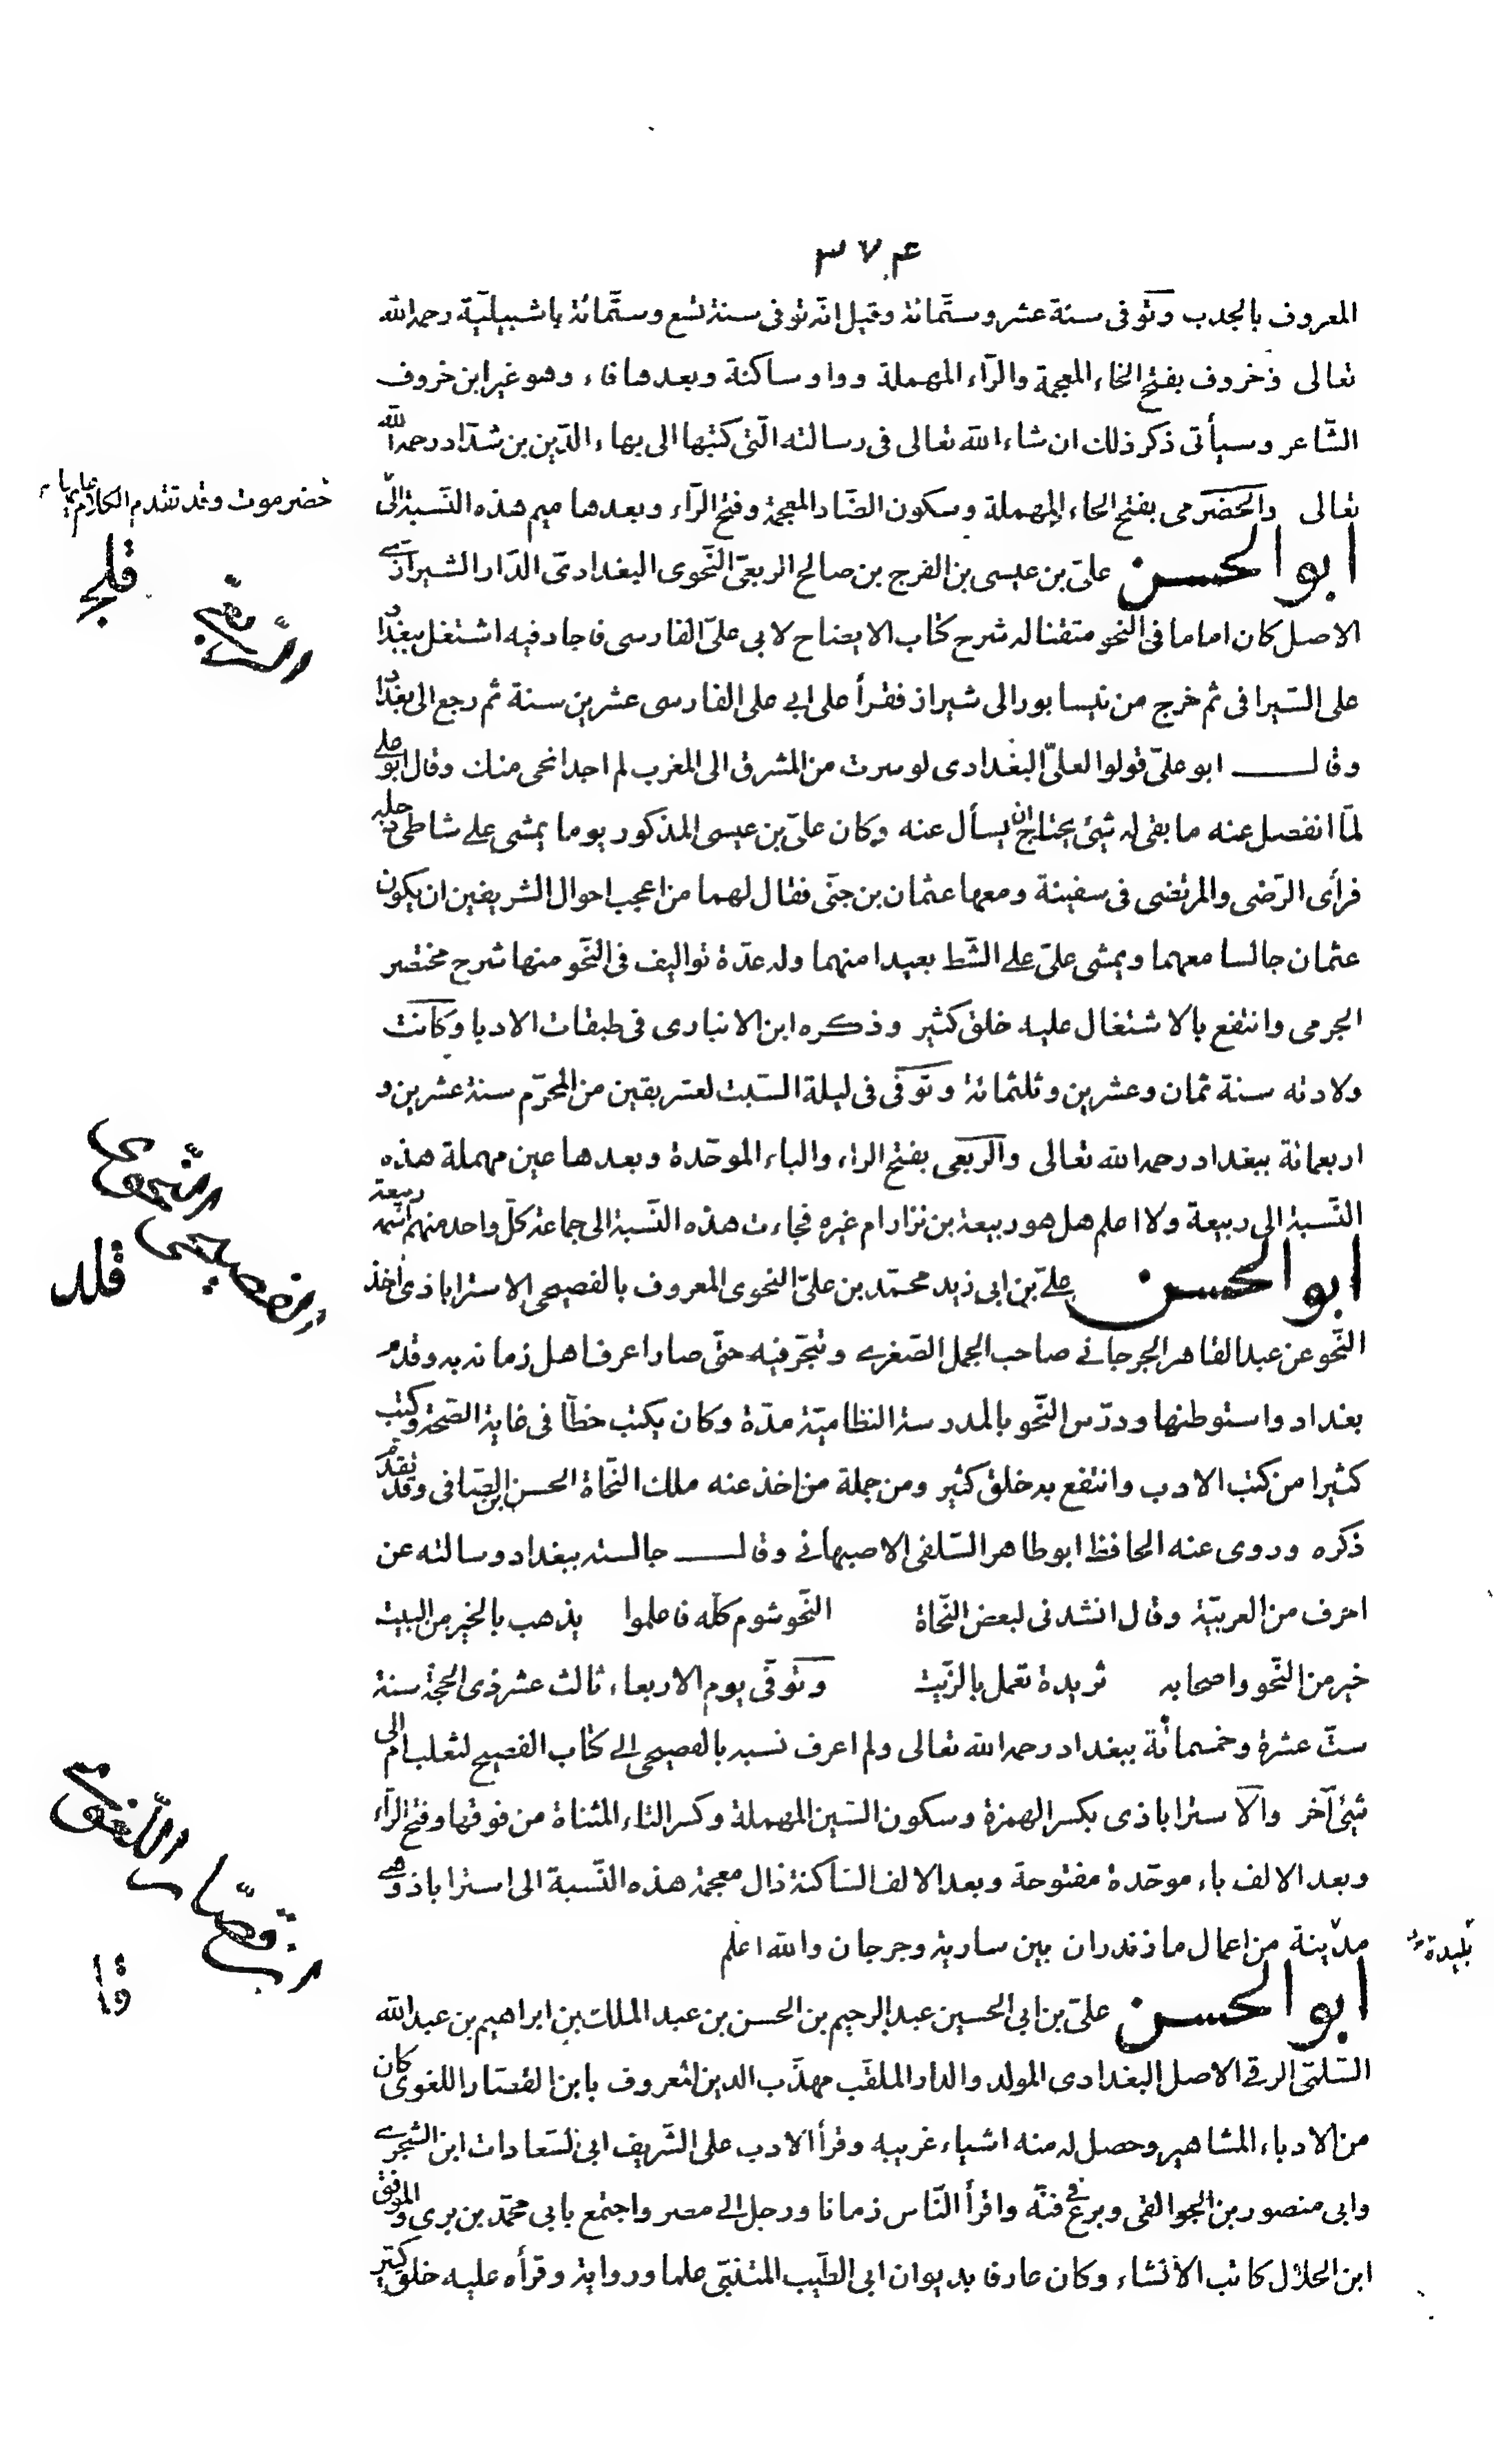 ٣٧٤
المعروف بالجدب وتوفى سنة عشر وستّمائة وقيل انّه توفى سنة تسع وستّمائة باشبيليّة رحمه الله
تعالى وخروف بفتح الخاء المعجمة والرّاء المهملة وواو ساكنة وبعدها فاء وهو غير ابن خروف
الشّاعر وسيأتى ذكر ذلك ان شاء الله تعالى فى رسالته الّتى كتبها الى بهاء الدّين بن شدّاد رحمه الله
تعالى والحَضْرَمى بفتح الحاء المهملة وسكون الضّاد المعجمة وفتح الرّاء وبعدها ميم هذه النّسبة الى
حضرموت وقد تقدم الكلام عليها
ابوالحسن علىّ بن عيسى بن الفرج بن صالح الربعىّ النّحوى البغدادىّ الدّار الشيرازے
الاصل كان اماما فى النحو متقنا له شرح كتاب الايضاح لابى علىّ الفارسى فاجاد فيه اشتغل ببغداد
على السّيرافى ثم خرج من نيسابور الى شيراز فقرأ على ابى على الفارسى عشرين سنة ثم رجع الى بغداد
وقال ابو علىّ قولوا لعلىّ البغدادى لو سرت من المشرق الى المغرب لم اجد انحى منك وقال ابو على
لمّا انفصل عنه ما بقى له شئ يحتاج ان يسأل عنه وكان علىّ بن عيسى المذكور يوما يمشى على شاطى دجلة
فرأى الرّضى والمرتضى فى سفينة ومعهما عثمان بن جنّى فقال لهما من اعجب احوال الشريفين ان يكون
عثمان جالسا معهما ويمشى علىّ على الشّط بعيدا منهما وله عدّة تواليف فى النّحو منها شرح مختصر
الجرمى وانتفع بالاشتغال عليه خلق كثير وذكره ابن الانبارى فى طبقات الادبا وكانت
ولادته سنة ثمان وعشرين وثلثمائة وتوفّى فى ليلة السّبت لعشر بقين من المحرّم سنة عشرين و
اربعمائة ببغداد رحمه الله تعالى والرّبعى بفتح الراء والباء الموحّدة وبعدها عين مهملة هذه
النّسبة الى ربيعة ولا اعلم هل هو ربيعة بن نزار ام غيره فجاءت هذه النّسبة الى جماعة كلّ واحد منهم اسمه ربيعة
ابوالحسن على بن ابى زيد محمّد بن علىّ النحوى المعروف بالفصيحى الاستراباذى اخذ
النّحو عن عبد القاهر الجرجانے صاحب الجمل الصّغرے وتبحّر فيه حتّى صار اعرف اهل زمانه به وقدم
بغداد واستوطنها ودرّس النّحو بالمدرسة النظاميّة مدّة وكان يكتب خطّا فى غاية الصّحة وكتب
كثيرا من كتب الادب وانتفع به خلق كثير ومن جملة من اخذ عنه ملك النّحاة الحسن بن الصّافى وقد تقدّم
ذكره وروى عنه الحافظ ابوطاهر السّلفى الاصبهانے وقال جالسته ببغداد وسالته عن
احرف من العربيّة وقال انشدنى لبعض النّحاة النّحو شوم كلّه فاعلموا يذهب بالخير من البيت
خير من النّحو واصحابه ثريدة تعمل بالزّيت وتوفّى يوم الاربعاء ثالث عشر ذى الحجّة سنة
ستّ عشرة وخمسمائة ببغداد رحمه الله تعالى ولم اعرف نسبه بالفصيحى الى كتاب الفصيح لثعلب ام الى
شئ آخر والاستراباذى بكسر الهمزة وسكون السّين المهملة وكسر التاء المثناة من فوقها وفتح الرّاء
وبعد الالف باء موحّدة مفتوحة وبعد الالف السّاكنة ذال معجمة هذه النّسبة الى استراباذ وهے
مدينة من اعمال مازندران بين سارية وجرجان والله اعلم
بليدة
ابوالحسن علىّ بن ابى الحسين عبد الرحيم بن الحسن بن عبد الملك بن ابراهيم بن عبد الله
السّلمّى الرقى الاصل البغدادى المولد والدار الملقّب مهذّب الدين المعروف بابن القصّار اللغوى كان
من الادباء المشاهير وحصل له منه اشياء غريبه وقرأ الادب على الشّريف ابى السّعادات ابن الشّجرے
وابى منصور بن الجوالقى وبرع فى فنّه واقرأ النّاس زمانا ورحل الى مصر واجتمع بابى محمّد بن برى والموفّق
ابن الخلال كاتب الانشاء وكان عارفا بديوان ابى الطّيب المتنبّى علما ورواية وقرأه عليه خلق كثير
قلد
قا